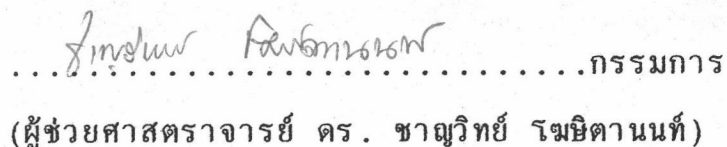 ................................กรรมการ
(ผู้ช่วยศาสตราจารย์ ดร. ชาญวิทย์ โฆษิตานนท์)